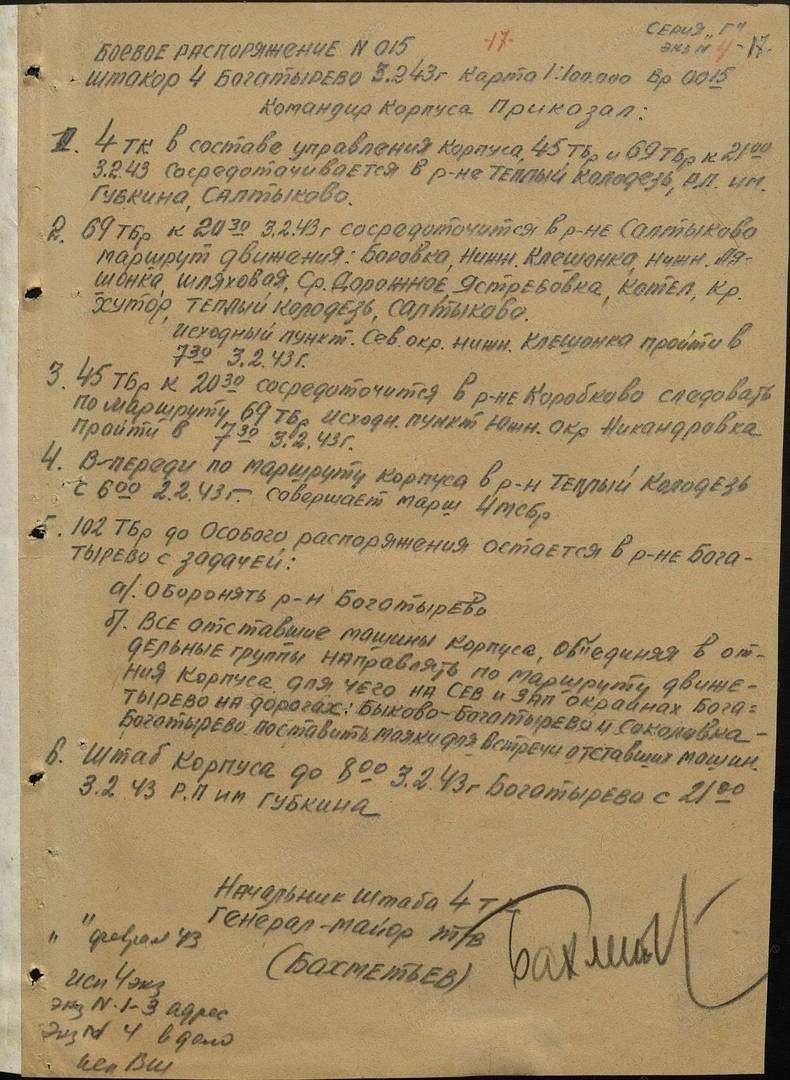 СЕРИЯ „Г"
ЭКЗ N 4
-17-
-17-
БОЕВОЕ РАСПОРЯЖЕНИЕ N 015
ШТАКОР 4 БОГАТЫРЕВО 3.2.43г КАРТА 1:100.000 ВР 0015
Командир Корпуса ПРИКАЗАЛ:
1. 4 ТК В составе управления Корпуса, 45 ТБр и 69 ТБр к 21 00
3.2.43 сосредотачивается в р-не ТЕПЛЫЙ КОЛОДЕЗЬ, Р.П. им.
ГУБКИНА, САЛТЫКОВО.
2. 69 ТБр к 20 30 3.2.43г сосредоточится в р-не Салтыково
маршрут движения: Боровка, Нижн. Клешонка, Нижн. Ля-
шонка, шляховая, Ср. Дорожное, Ястребовка, Котел, Кр.
хутор, Теплый Колодезь, Салтыково.
Исходный пункт. Сев. окр. Нижн. Клешонка пройти в
7 30 3.2.43г.
3. 45 ТБр к 20 30 сосредоточится в р-не Коробково следовать
по маршруту 69 ТБр исходн. пункт Южн. окр Никандровка
пройти в 7 30 3.2.43г.
4. В-переди по маршруту Корпуса в р-н Теплый Колодезь
с 6 00 2.2.43г. совершает марш 4мсбр
5. 102 ТБр до Особого распоряжения остается в р-не Бога-
тырево с задачей:
а/. Оборонять р-н Богатырево
б/. Все отставшие машины Корпуса, объединяя в от-
дельные группы направлять по маршруту движе-
ния Корпуса для чего на СЕВ и ЗАП окраинах Бога-
тырево на дорогах: Быково-Богатырево и Соколовна-
Богатырево поставить маяки для встречи отставших машин.
6. Штаб Корпуса до 8 00 3.2.43г Богатырево с 21 00
3.2.43 Р.П им ГУБКИНА
Начальник Штаба 4 тк
Генерал-майор т/в
(Бахметьев)
" " февраля 43
исп 4 экз
Экз N 1-3 адрес
Экз N 4 в дело
исп ВШ